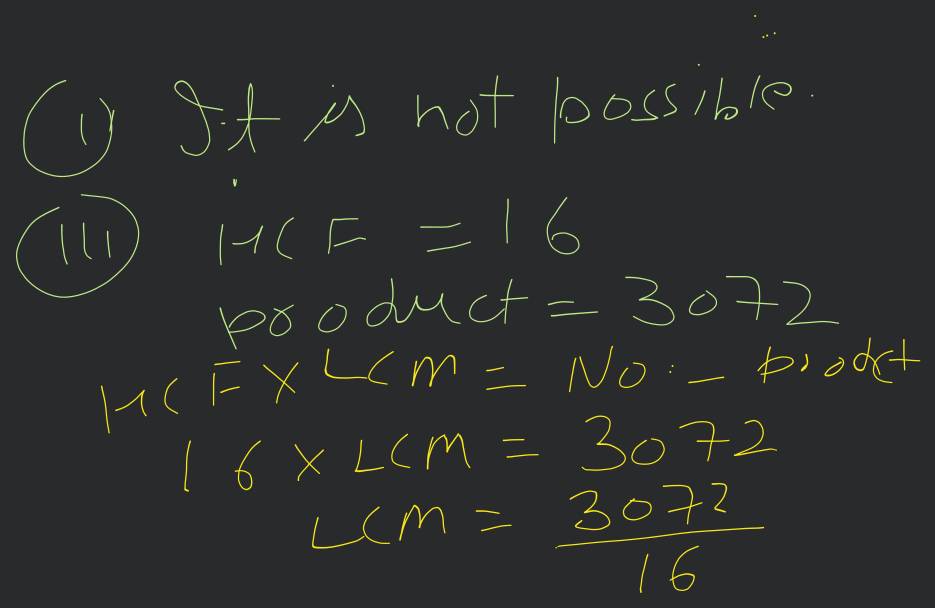 (I) It is not possible.
(III) HCF = 16
product = 3072
HCF X LCM = No. - prodct
16 X LCM = 3072
LCM = 3072
16